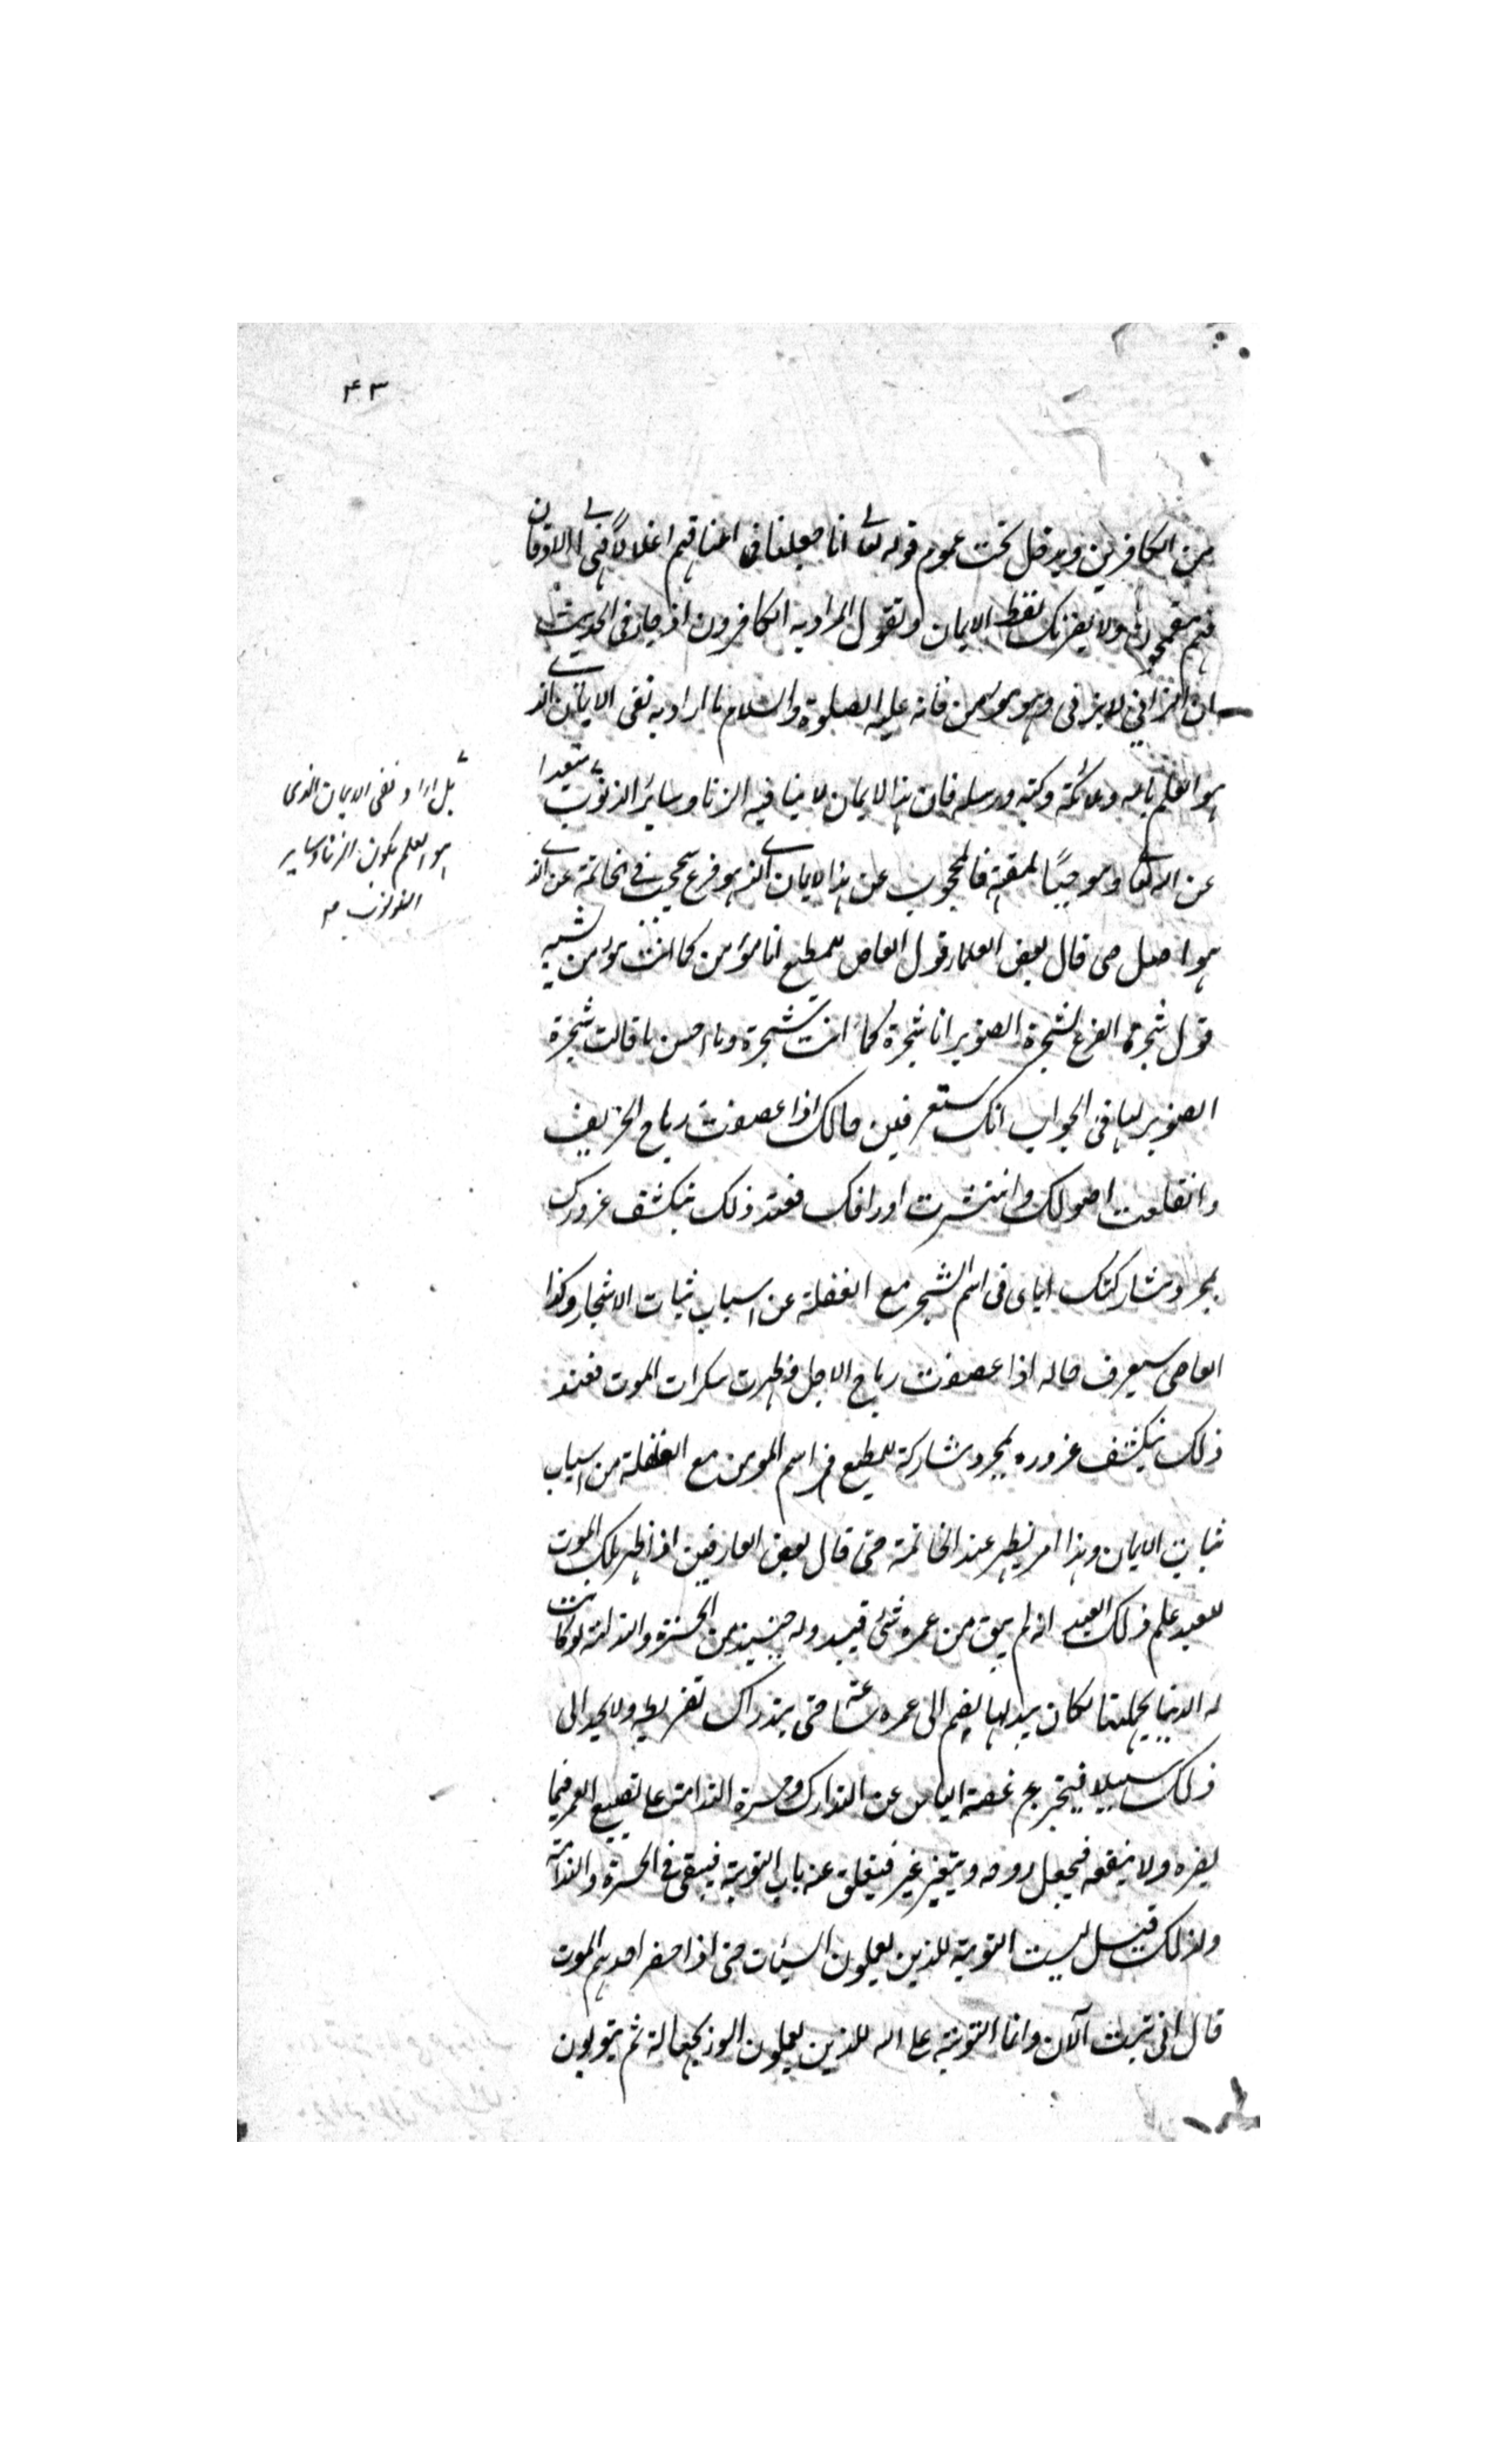 ٤٣
من الكافرين ويدخل تحت عموم قوله تعالى انا جعلنا فى اعناقهم اغلالاً فهى الى الاذقان
فهم مقمحون ولا يغرنك لفظ الايمان وتقول المراد به الكافرون اذ جاء فى الحديث
ان الزانى لا يزنى وهو مؤمن فانه عليه الصلوة والسلام ما اراد به نفى الايمان الذى
هو العلم بالله وملائكته وكتبه ورسله فان هذا الايمان لا ينافيه الزنا وساير الذنوب مبعدا
عن الله تعالى وموجباً لمقته فالمحجوب عن هذا الايمان الذى هو فرع سيحجب فى الخاتمة عن الذى
هو اصل حتى قال بعض العلماء قول العاصى للمطيع انا مؤمن كما انت مؤمن شبيه
قول شجرة القرع لشجرة الصنوبر انا شجرة كما انت شجرة وما احسن ما قالت شجرة
الصنوبر لها فى الجواب انك ستعرفين حالك اذا عصفت رياح الخريف
وانقلعت اصولك وانتثرت اوراقك فعند ذلك ينكشف غرورك
بمجرد مشاركتك اياى فى اسم الشجر مع الغفلة عن اسباب ثبات الاشجار وكذا
العاصى سيعرف حاله اذا عصفت رياح الاجل وظهرت سكرات الموت فعند
ذلك ينكشف غروره بمجرد مشاركة المطيع فى اسم المؤمن مع الغفلة من اسباب
ثبات الايمان وهذا امر يظهر عند الخاتمة حتى قال بعض العارفين اذا ظهر ملك الموت
للعبد علم ذلك العبد انه لم يبق من عمره شئ فيبدو له حينئذ من الحسرة والندامة لو كانت
له الدنيا بجملتها لكان يبذلها ليضم الى عمره ساعة حتى يتدارك تفريطه ولا يجد الى
ذلك سبيلا فيتجرع غصة الياس عن التدارك وحسرة الندامة على تضييع العمر فيما
يضره ولا ينفعه فيجعل روحه ويتغير غير فيغلق عنه باب التوبة فيبقى فى الحسرة والندامة
ولذلك قيل ليست التوبة للذين يعملون السيئات حتى اذا حضر احدهم الموت
قال انى تبت الآن وانما التوبة على الله للذين يعملون السوء بجهالة ثم يتوبون
بل اراد نفى الايمان الذى
هو العلم بكون الزنا وساير
الذنوب صح